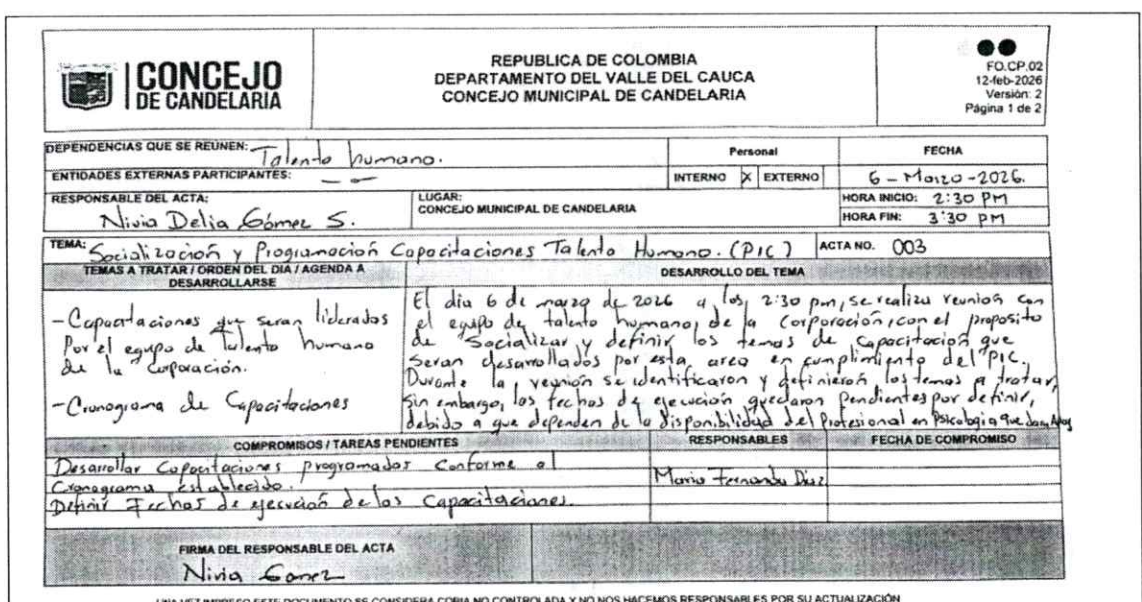 CONCEJO
DE CANDELARIA
REPUBLICA DE COLOMBIA
DEPARTAMENTO DEL VALLE DEL CAUCA
CONCEJO MUNICIPAL DE CANDELARIA
FO.CP.02
12-feb-2026
Versión: 2
Página 1 de 2
DEPENDENCIAS QUE SE REÚNEN: Talento humano.
Personal
FECHA
ENTIDADES EXTERNAS PARTICIPANTES: — —
INTERNO X EXTERNO
6 - Marzo - 2026.
RESPONSABLE DEL ACTA:
Nivia Delia Gómez S.
LUGAR:
CONCEJO MUNICIPAL DE CANDELARIA
HORA INICIO: 2:30 PM
HORA FIN: 3:30 PM
TEMA: Socialización y Programación Capacitaciones Talento Humano. (PIC)
ACTA NO. 003
TEMAS A TRATAR / ORDEN DEL DIA / AGENDA A
DESARROLLARSE
- Capacitaciones que seran liderados
Por el equipo de Talento humano
de la Corporación.
- Cronograma de Capacitaciones
DESARROLLO DEL TEMA
El dia 6 de marzo de 2026 a los, 2:30 pm, se realiza reunion con
el equipo de talento humano, de la Corporoción, con el proposito
de Socializar y definir los temas de capacitación que
Seran desarrollados por esta area en cumplimiento del PIC.
Durante la reunión se identificaron y definieron los temas a tratar,
Sin embargo, las fechas de ejecución quedaron pendientes por definir,
debido a que dependen de la disponibilidad del Profesional en Psicologia que
COMPROMISOS / TAREAS PENDIENTES
RESPONSABLES
FECHA DE COMPROMISO
Desarrollar Capacitaciones programadas Conforme al
Cronograma establecido.
Maria Fernanda Diaz
Definir Fechas de ejecución de las Capacitaciones.
FIRMA DEL RESPONSABLE DEL ACTA
Nivia Gomez
UNA VEZ IMPRESO ESTE DOCUMENTO SE CONSIDERA COPIA NO CONTROLADA Y NO NOS HACEMOS RESPONSABLES POR SU ACTUALIZACIÓN